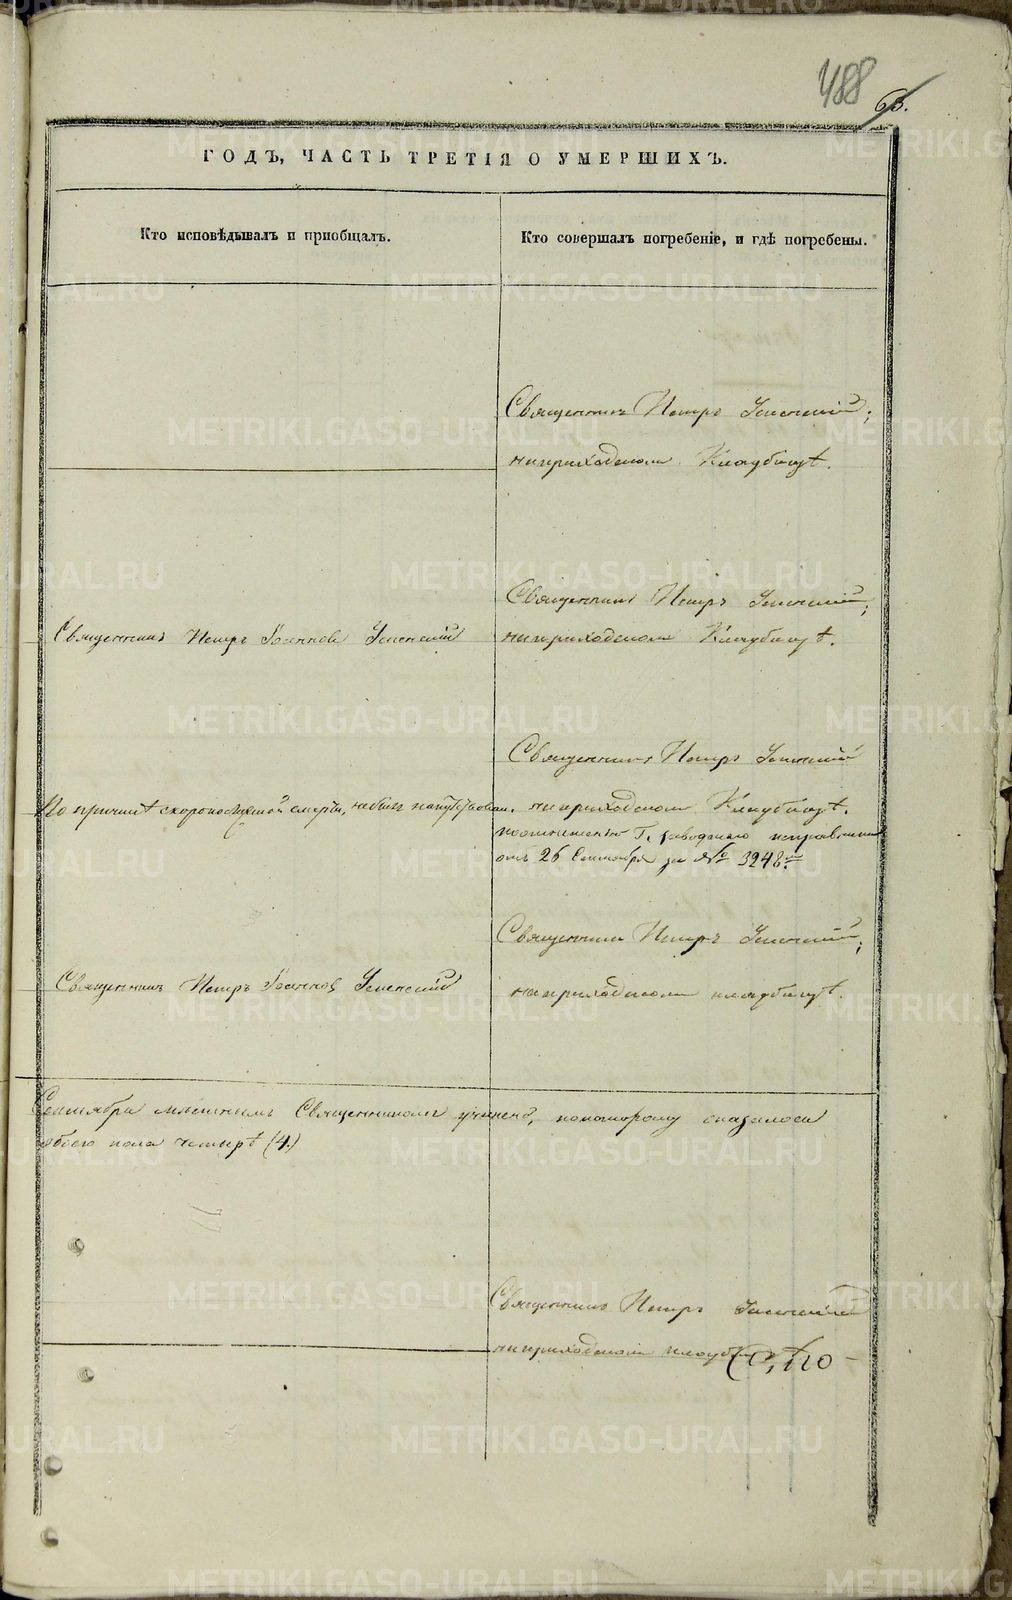 488
63.
ГОДЪ, ЧАСТЬ ТРЕТІЯ О УМЕРШИХЪ.
Кто исповѣдывалъ и пріобщалъ.
Кто совершалъ погребеніе, и гдѣ погребены.
Священникъ Петръ Успенскій;
на приходскомъ Кладбищѣ.
Священникъ Петръ Іоанновъ Успенскій
Священникъ Петръ Успенскій;
на приходскомъ Кладбищѣ.
По причинѣ скоропостижной смерти, не былъ напутствован.
Священникъ Петръ Успенскій
на приходскомъ Кладбищѣ.
по отношенію Г. заводскаго исправника
отъ 26 Сентября за № 3248.
Священникъ Петръ Іоанновъ Успенскій
Священникъ Петръ Успенскій;
на приходскомъ кладбищѣ.
Сентября мѣстнымъ Священникомъ учинено, по которому оказалось
обоего пола четыре (4.)
Священникъ Петръ Успенскій
на приходскомъ
METRIKI.GASO-URAL.RU